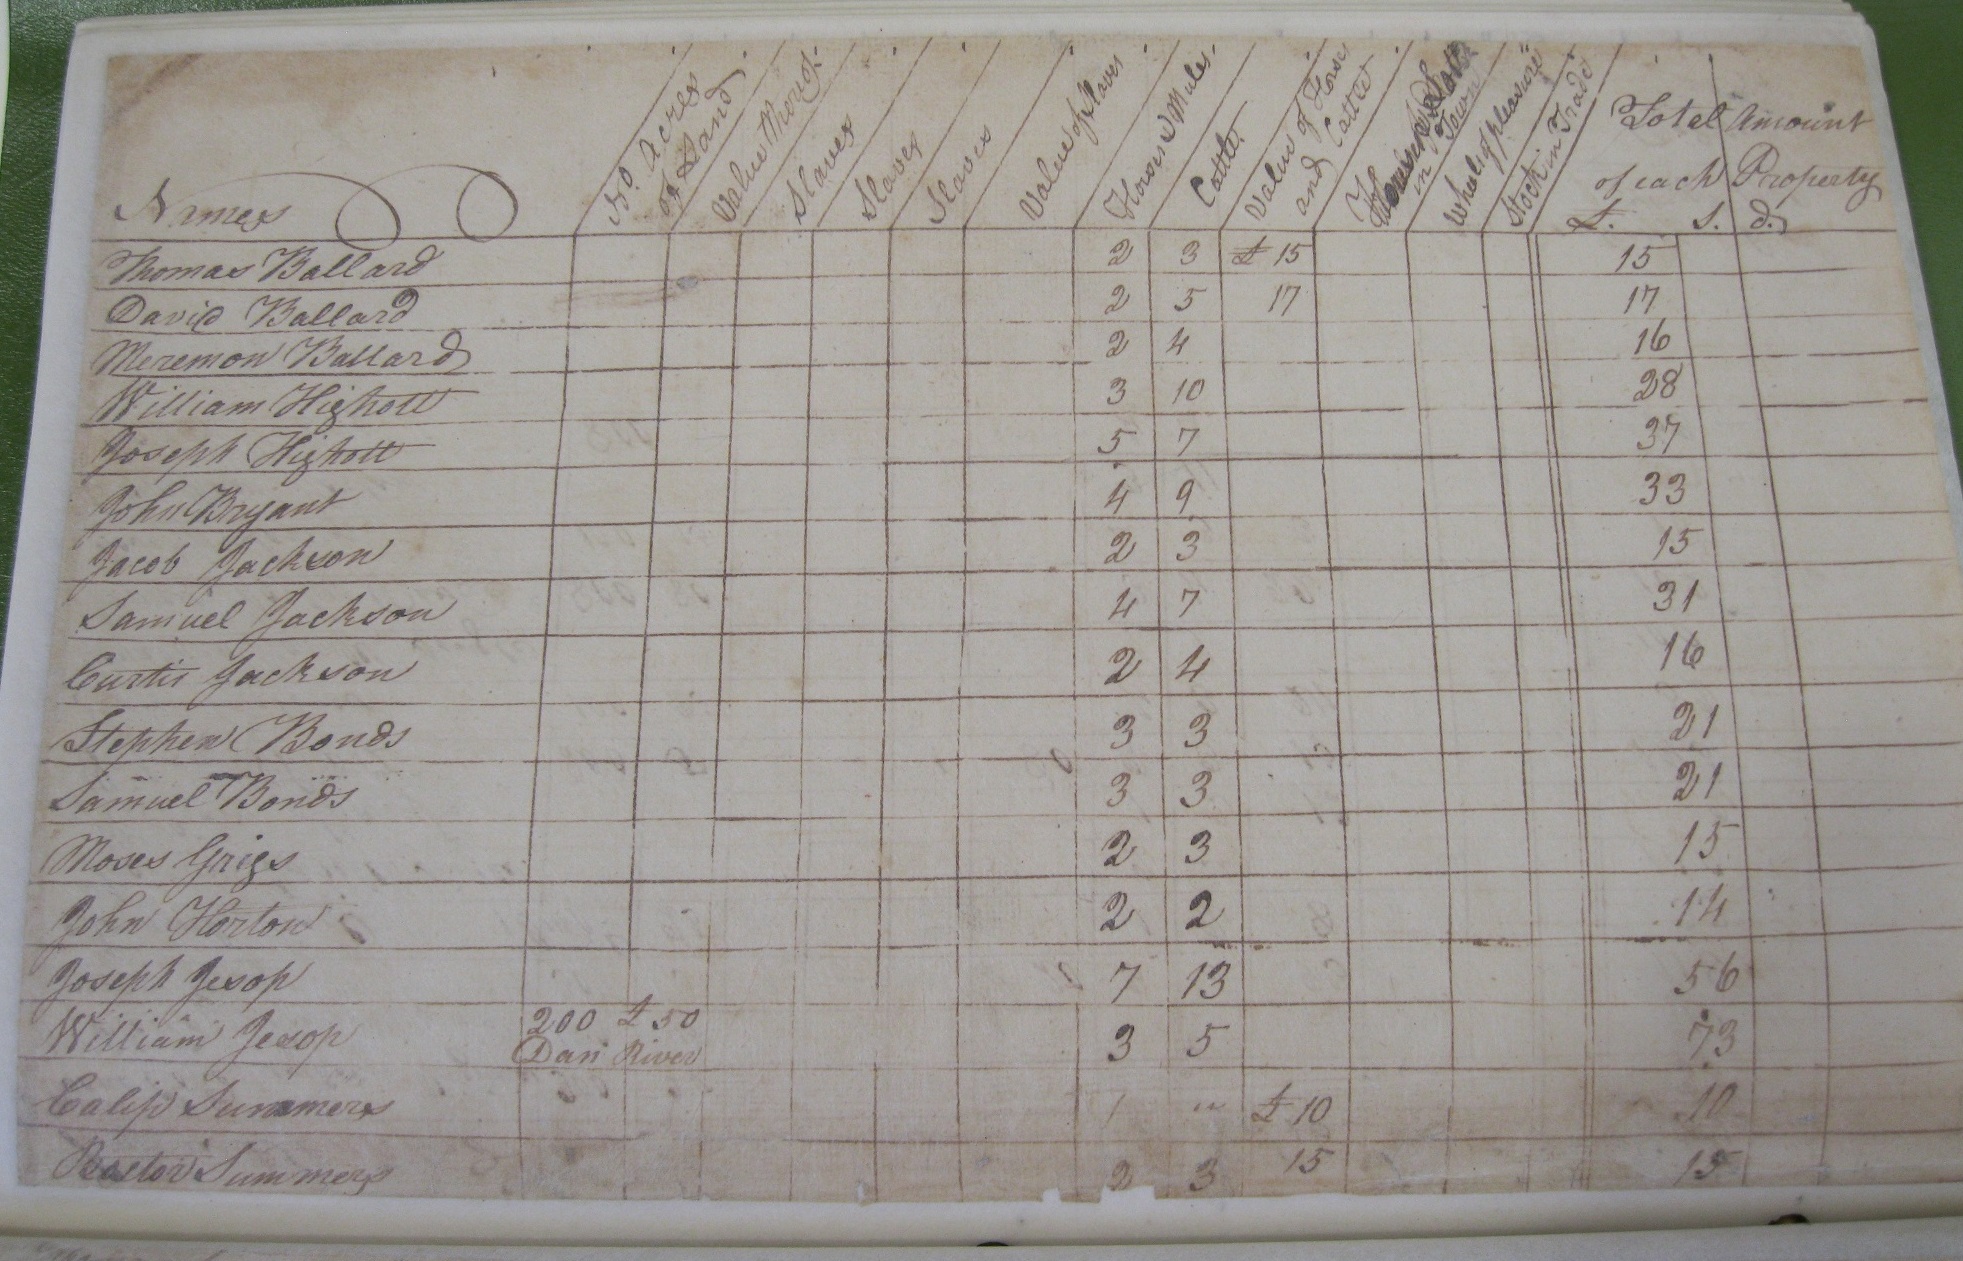 Names No. Acres of Land Value Thereof Slaves Slaves Slaves Value of Slaves Horses & Mules Cattle Value of Horses and Cattle in Town Wheels of pleasure Stock in Trade Total Amount of each Property
£. S. d.
Thomas Ballard 2 3 £ 15 15
David Ballard 2 5 17 17
Meremon Ballard 2 4 16
William Highott 3 10 28
Joseph Highott 5 7 37
John Bryant 4 9 33
Jacob Jackson 2 3 15
Samuel Jackson 4 7 31
Curtis Jackson 2 4 16
Stephen Bonds 3 3 21
Samuel Bonds 3 3 21
Moses Grigs 2 3 15
John Horton 2 2 14
Joseph Jesop 7 13 56
William Jesop 200 £ 50 3 5 73
Dan River
Calip Summers 1 " £ 10 10
Summers 2 3 15 15